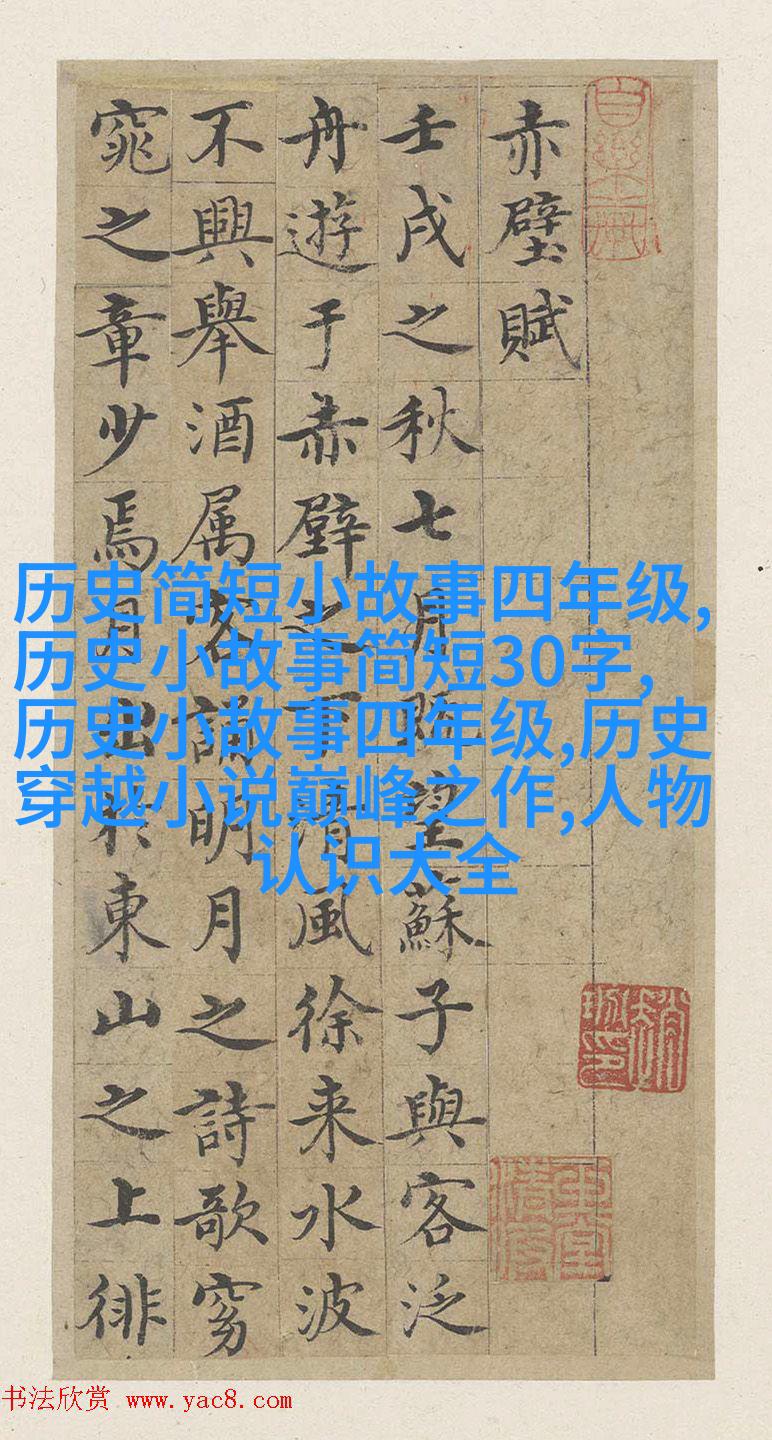 赤壁賦
壬戌之秋七月既望蘇子與客泛
舟遊于赤壁之下清風徐来水波
不興舉酒属客誦明月之詩歌窈
窕之章少焉月出於東山之上徘
历史简短小故事四年级,
历史小故事简短30字,
历史小故事四年级,历史
穿越小说巅峰之作,人物
认识大全
书法欣赏 www.yac8.com